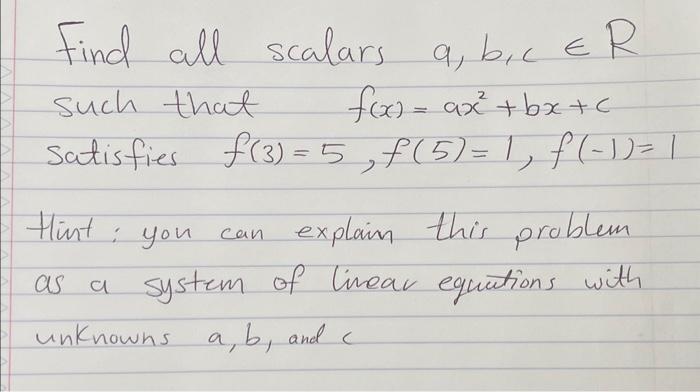 Find all scalars a, b, c ∈ R
such that f(x) = ax² + bx + c
satisfies f(3) = 5, f(5) = 1, f(-1) = 1
Hint: you can explain this problem
as a system of linear equations with
unknowns a, b, and c